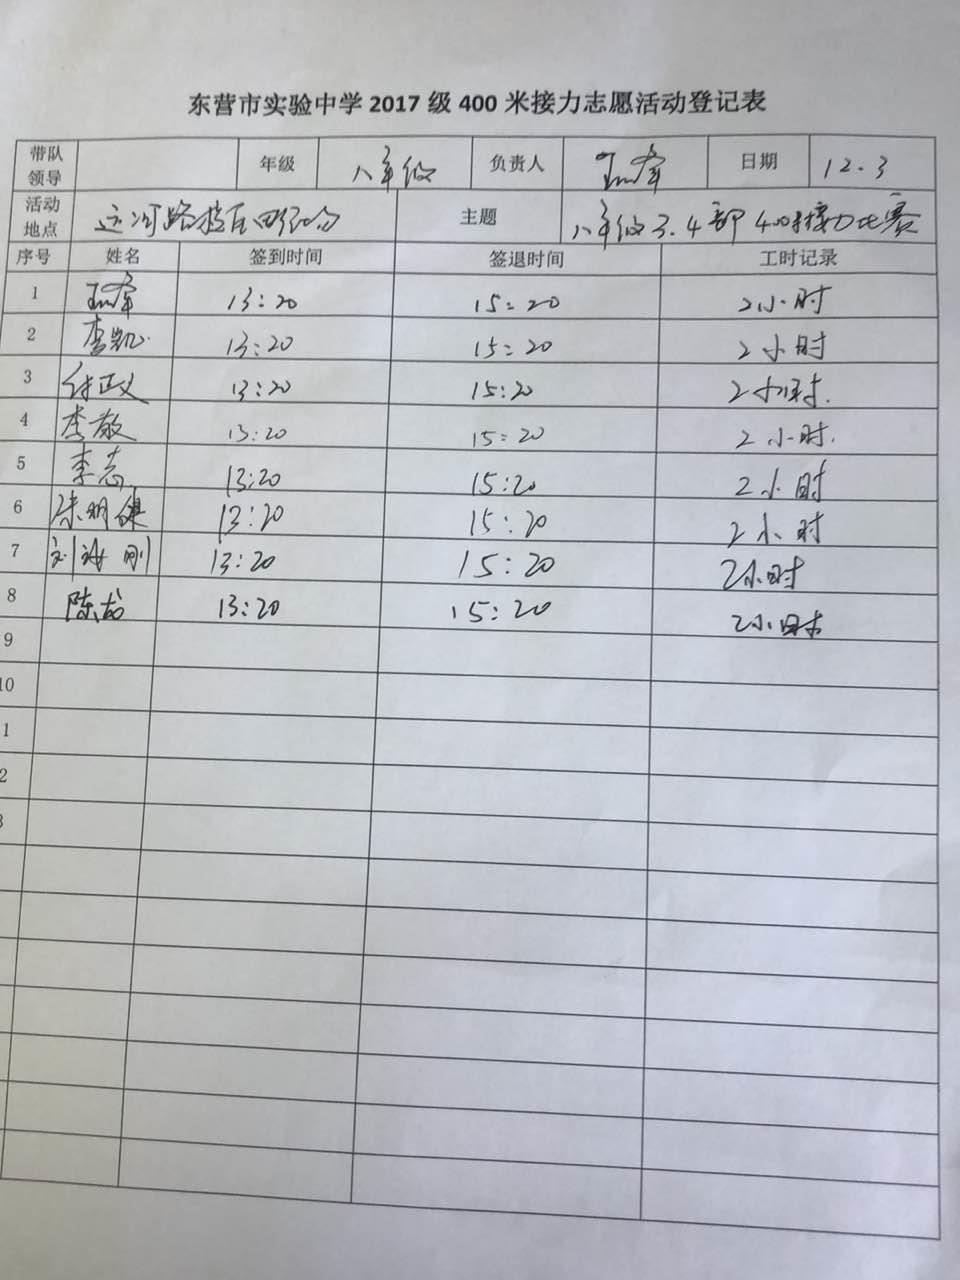 东营市实验中学 2017 级 400 米接力志愿活动登记表
带队领导 年级 八年级 负责人 日期 12.3
活动地点 运河路 主题 八年级 3.4部 400米接力比赛
序号 姓名 签到时间 签退时间 工时记录
1 13:20 15:20 2小时
2 李凯 13:20 15:20 2小时
3 付正义 13:20 15:20 2小时.
4 李敬 13:20 15:20 2小时.
5 李志 13:20 15:20 2小时
6 13:20 15:20 2小时
7 刘海刚 13:20 15:20 2小时
8 陈龙 13:20 15:20 2小时
9
10
1
2
3